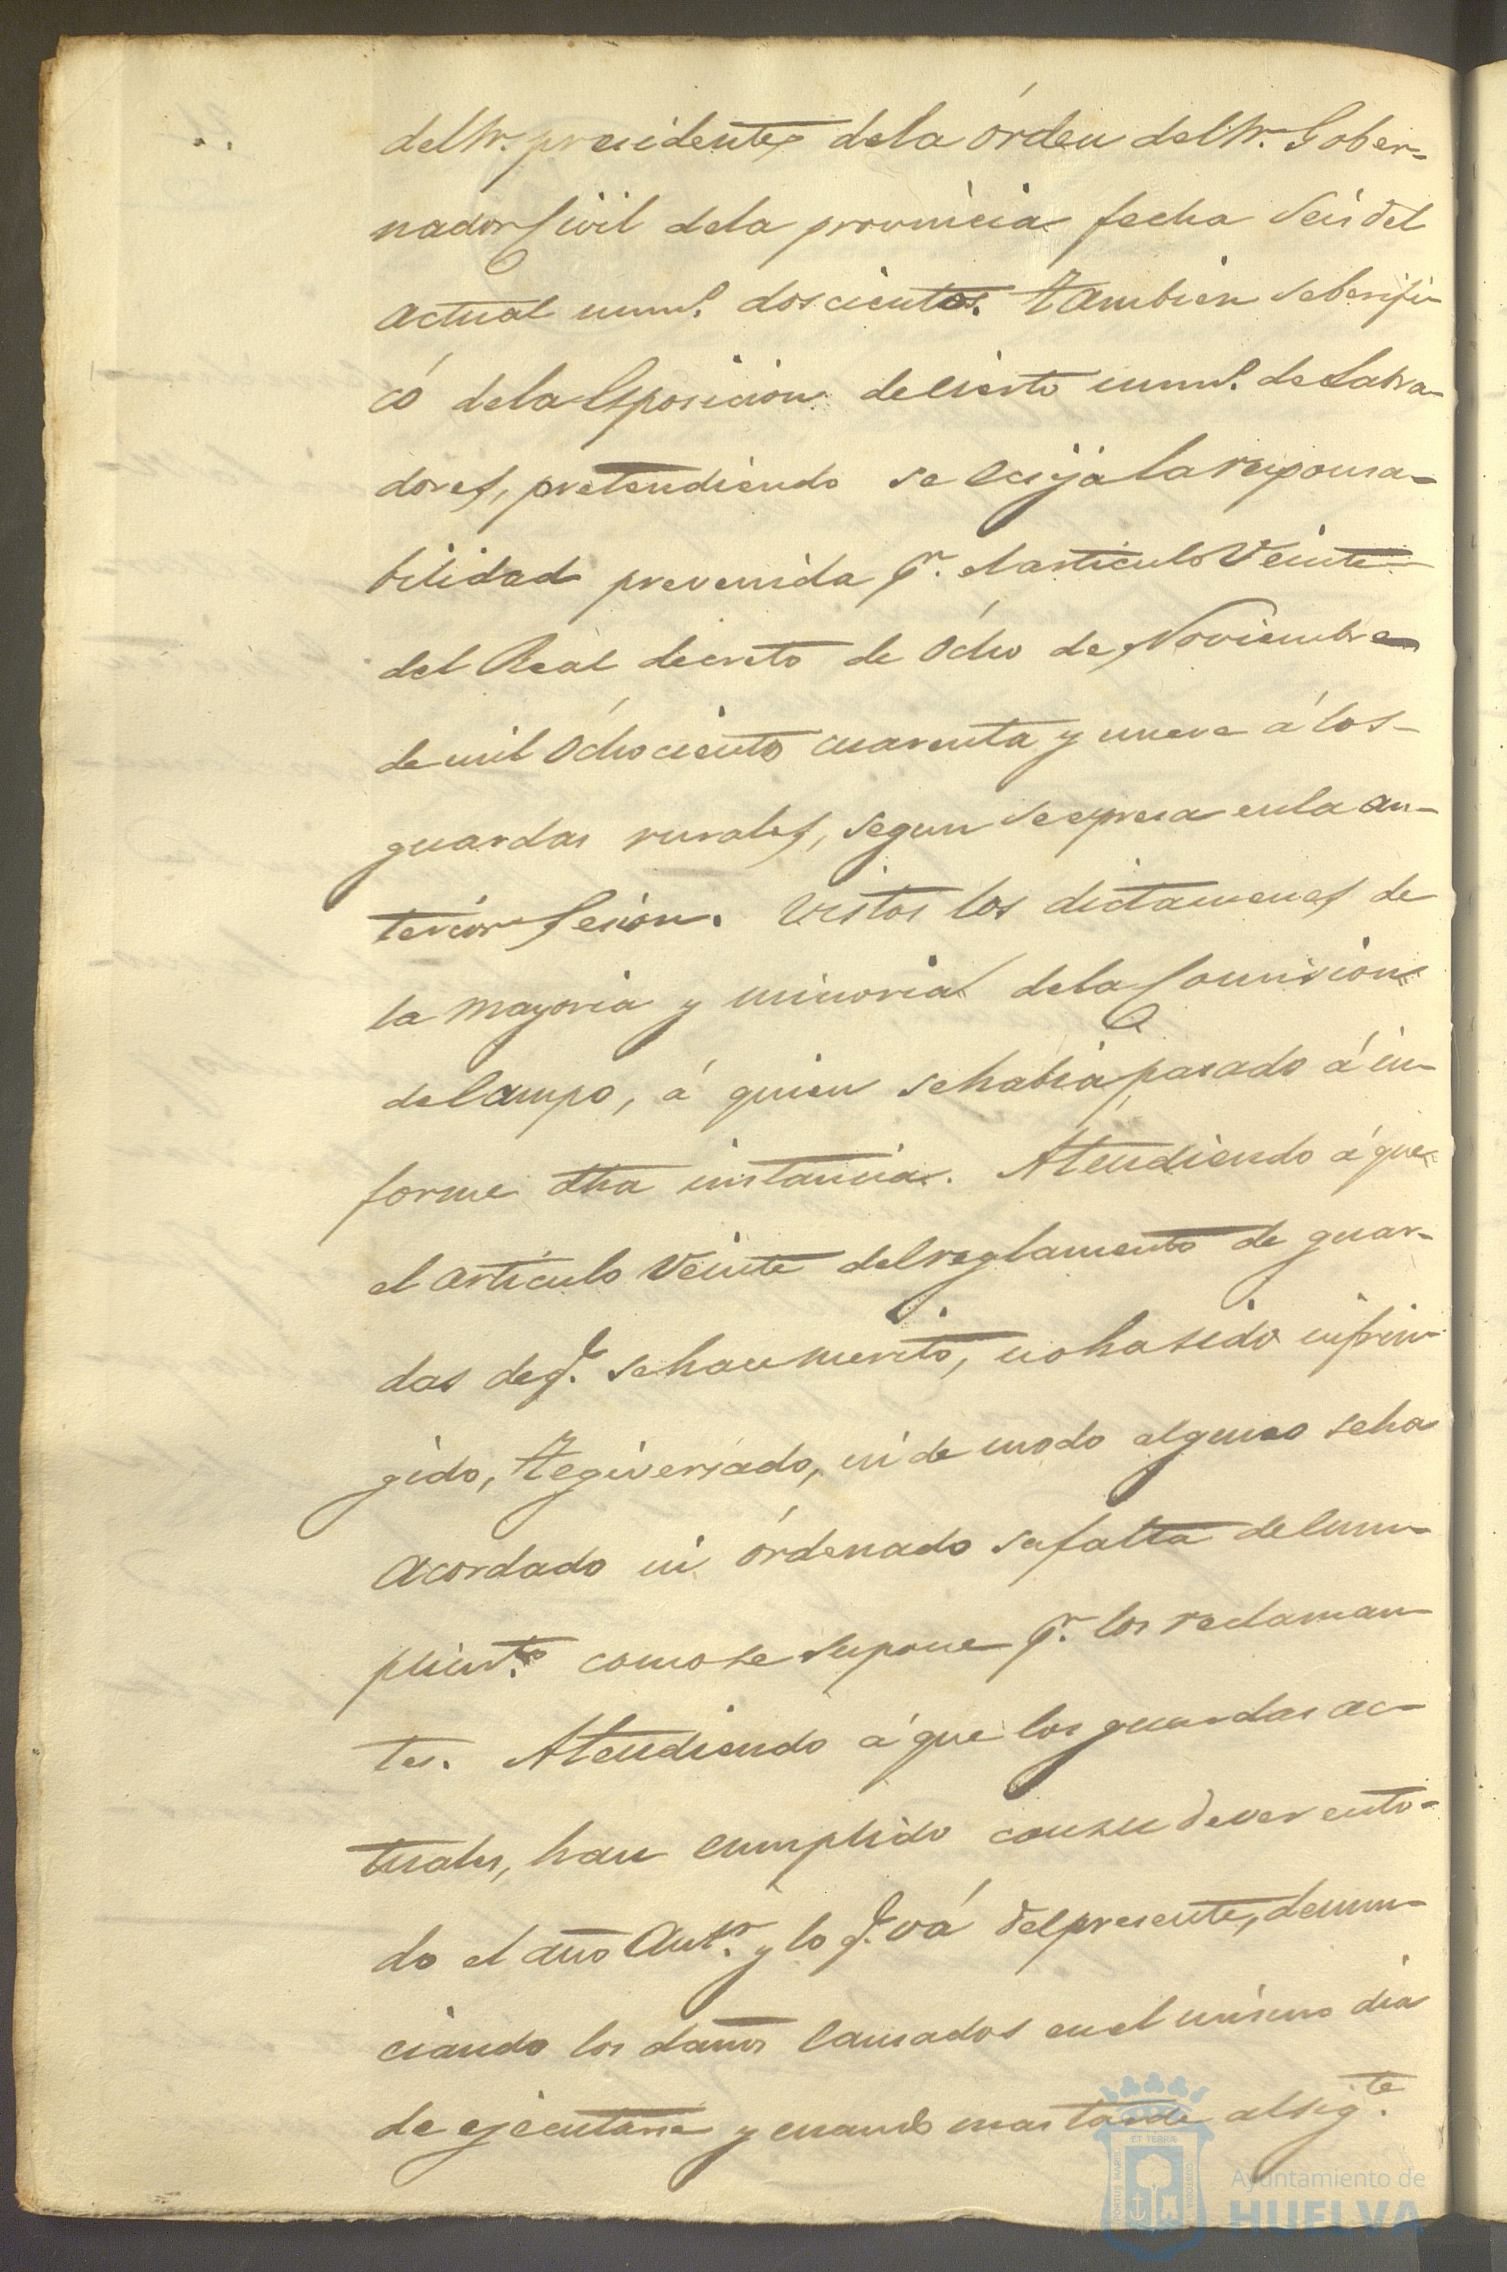 del Sr. presidente, de la órden del Sr. Gober-
nador Civil de la provincia fecha seis del
actual num.º doscientos. Tambien se berifi-
có de la Esposicion de cierto num.º de Labra-
dores, pretendiendo se exija la responsa-
bilidad prevenida p.r el articulo Veinte
del Real decreto de Ocho de Noviembre
de mil Ochociento cuarenta y nueve á los
guardas rurales, segun se espresa en la an-
terior Sesion. Vistos los dictamenes de
la mayoria y minoria de la Comision
de Campo, á quien se habia pasado á in-
forme dha instancia. Atendiendo á que
el articulo Veinte del reglamento de guar-
das de q.e se hace merito, no ha sido infrin-
gido, Tegiversado, ni de modo alguno se ha
acordado ni órdenado su falta de cum-
plim.to como se supone p.r los reclaman-
tes. Atendiendo á que los guardas ac-
tuales, han cumplido con su dever en to-
do el año Ant.r y lo q.e vá del presente, denun-
ciando los daños causados en el mismo dia
de ejecutarse y cuando mas tarde al sig.te
PORTUS MARIS ET TERRAE CUSTODIA
Ayuntamiento de
HUELVA